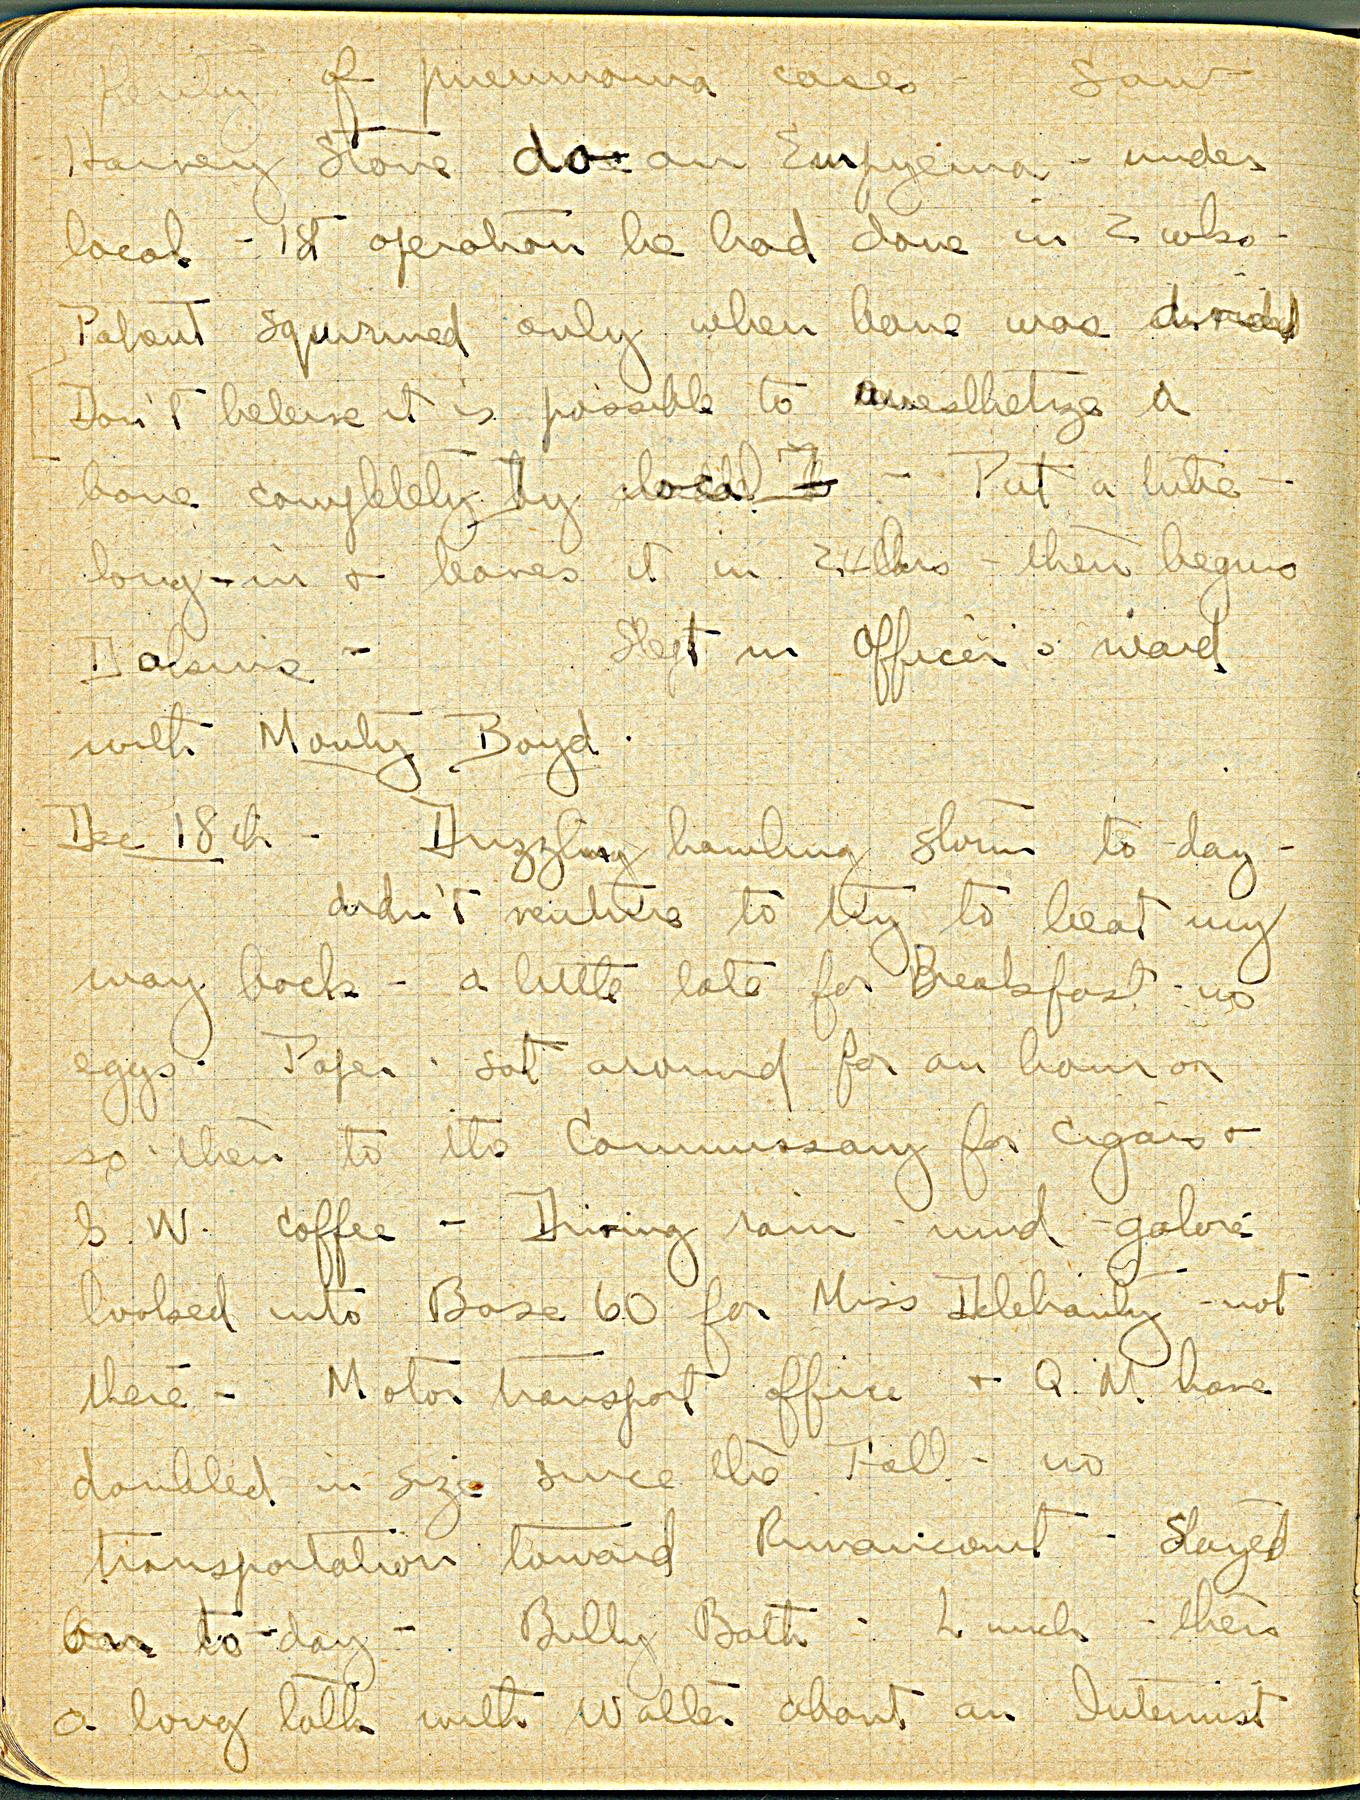 Plenty of pneumonia cases - Saw
Harvey Stone do an Empyema - under
local - 1st operation he had done in 2 wks -
Patient squirmed only when bone was divided
Don't beleive it is possible to anesthetize a
bone completely by local - Put a tube -
long - in & leaves it in 24 hrs - then begins
Dakins - Slept in Officer's ward
with Monty Boyd.
Dec 18th - Drizzling howling storm to-day -
didn't venture to try to beat my
way back - a little late for Breakfast - no
eggs. Paper. sat around for an hour or
so. then to the Commissary for cigars &
G. W. coffee - Driving rain - mud - galore
looked into Base 60 for Miss Delehanty - not
there - Motor transport office & Q. M. have
doubled in size since the Fall. - no
transportation toward Rimaucourt - Stayed
on to-day - Billy Bath - Lunch - then
a long talk with Walter about an Internist